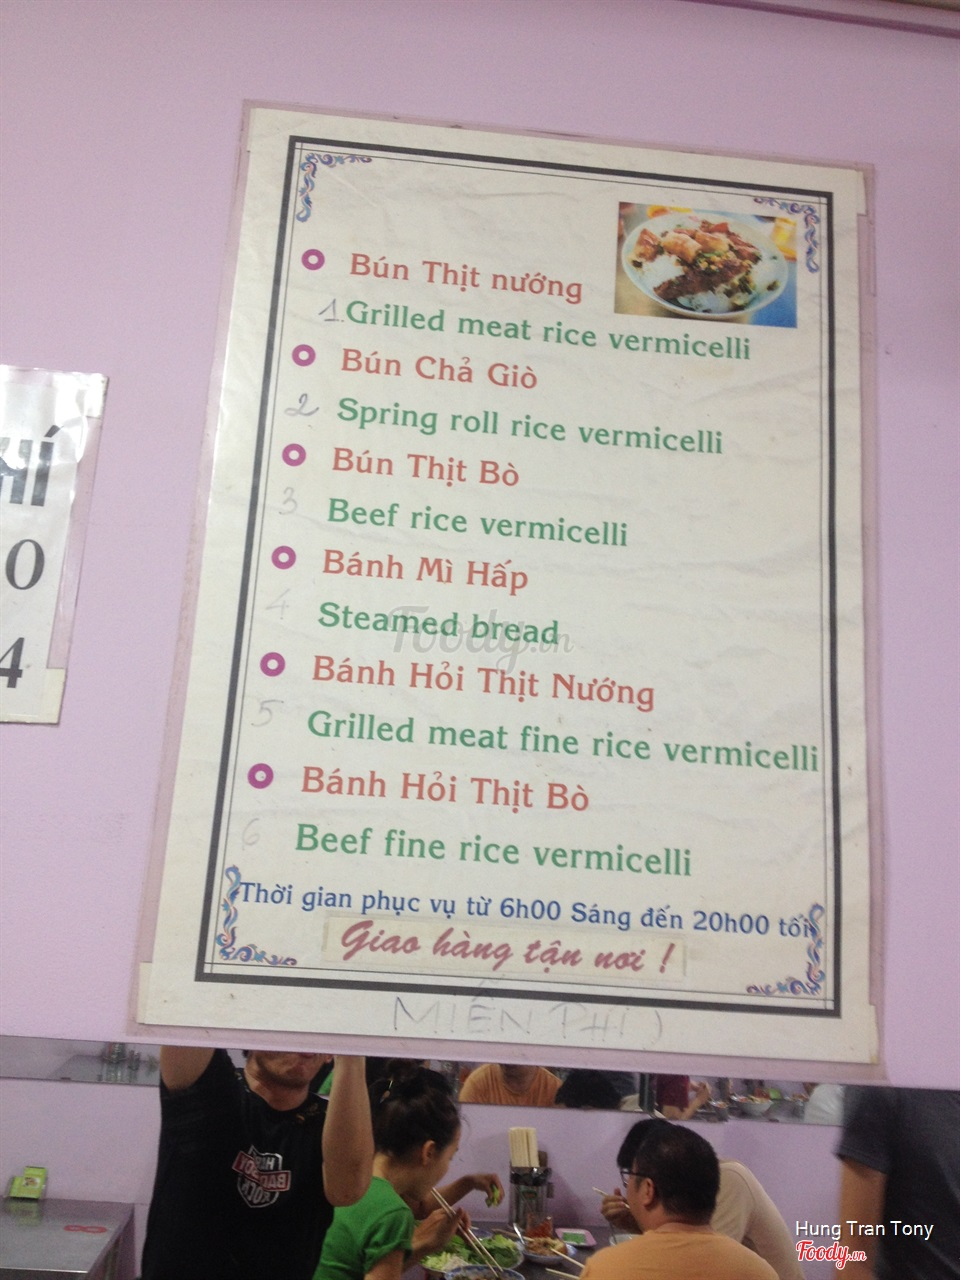 Bún Thịt nướng
1. Grilled meat rice vermicelli
Bún Chả Giò
2 Spring roll rice vermicelli
Bún Thịt Bò
3 Beef rice vermicelli
Bánh Mì Hấp
4 Steamed bread
Bánh Hỏi Thịt Nướng
5 Grilled meat fine rice vermicelli
Bánh Hỏi Thịt Bò
6 Beef fine rice vermicelli
Thời gian phục vụ từ 6h00 Sáng đến 20h00 tối
Giao hàng tận nơi !
MIỄN PHÍ )
HÍ
0
4
Foody.vn
Hung Tran Tony
Foody.vn